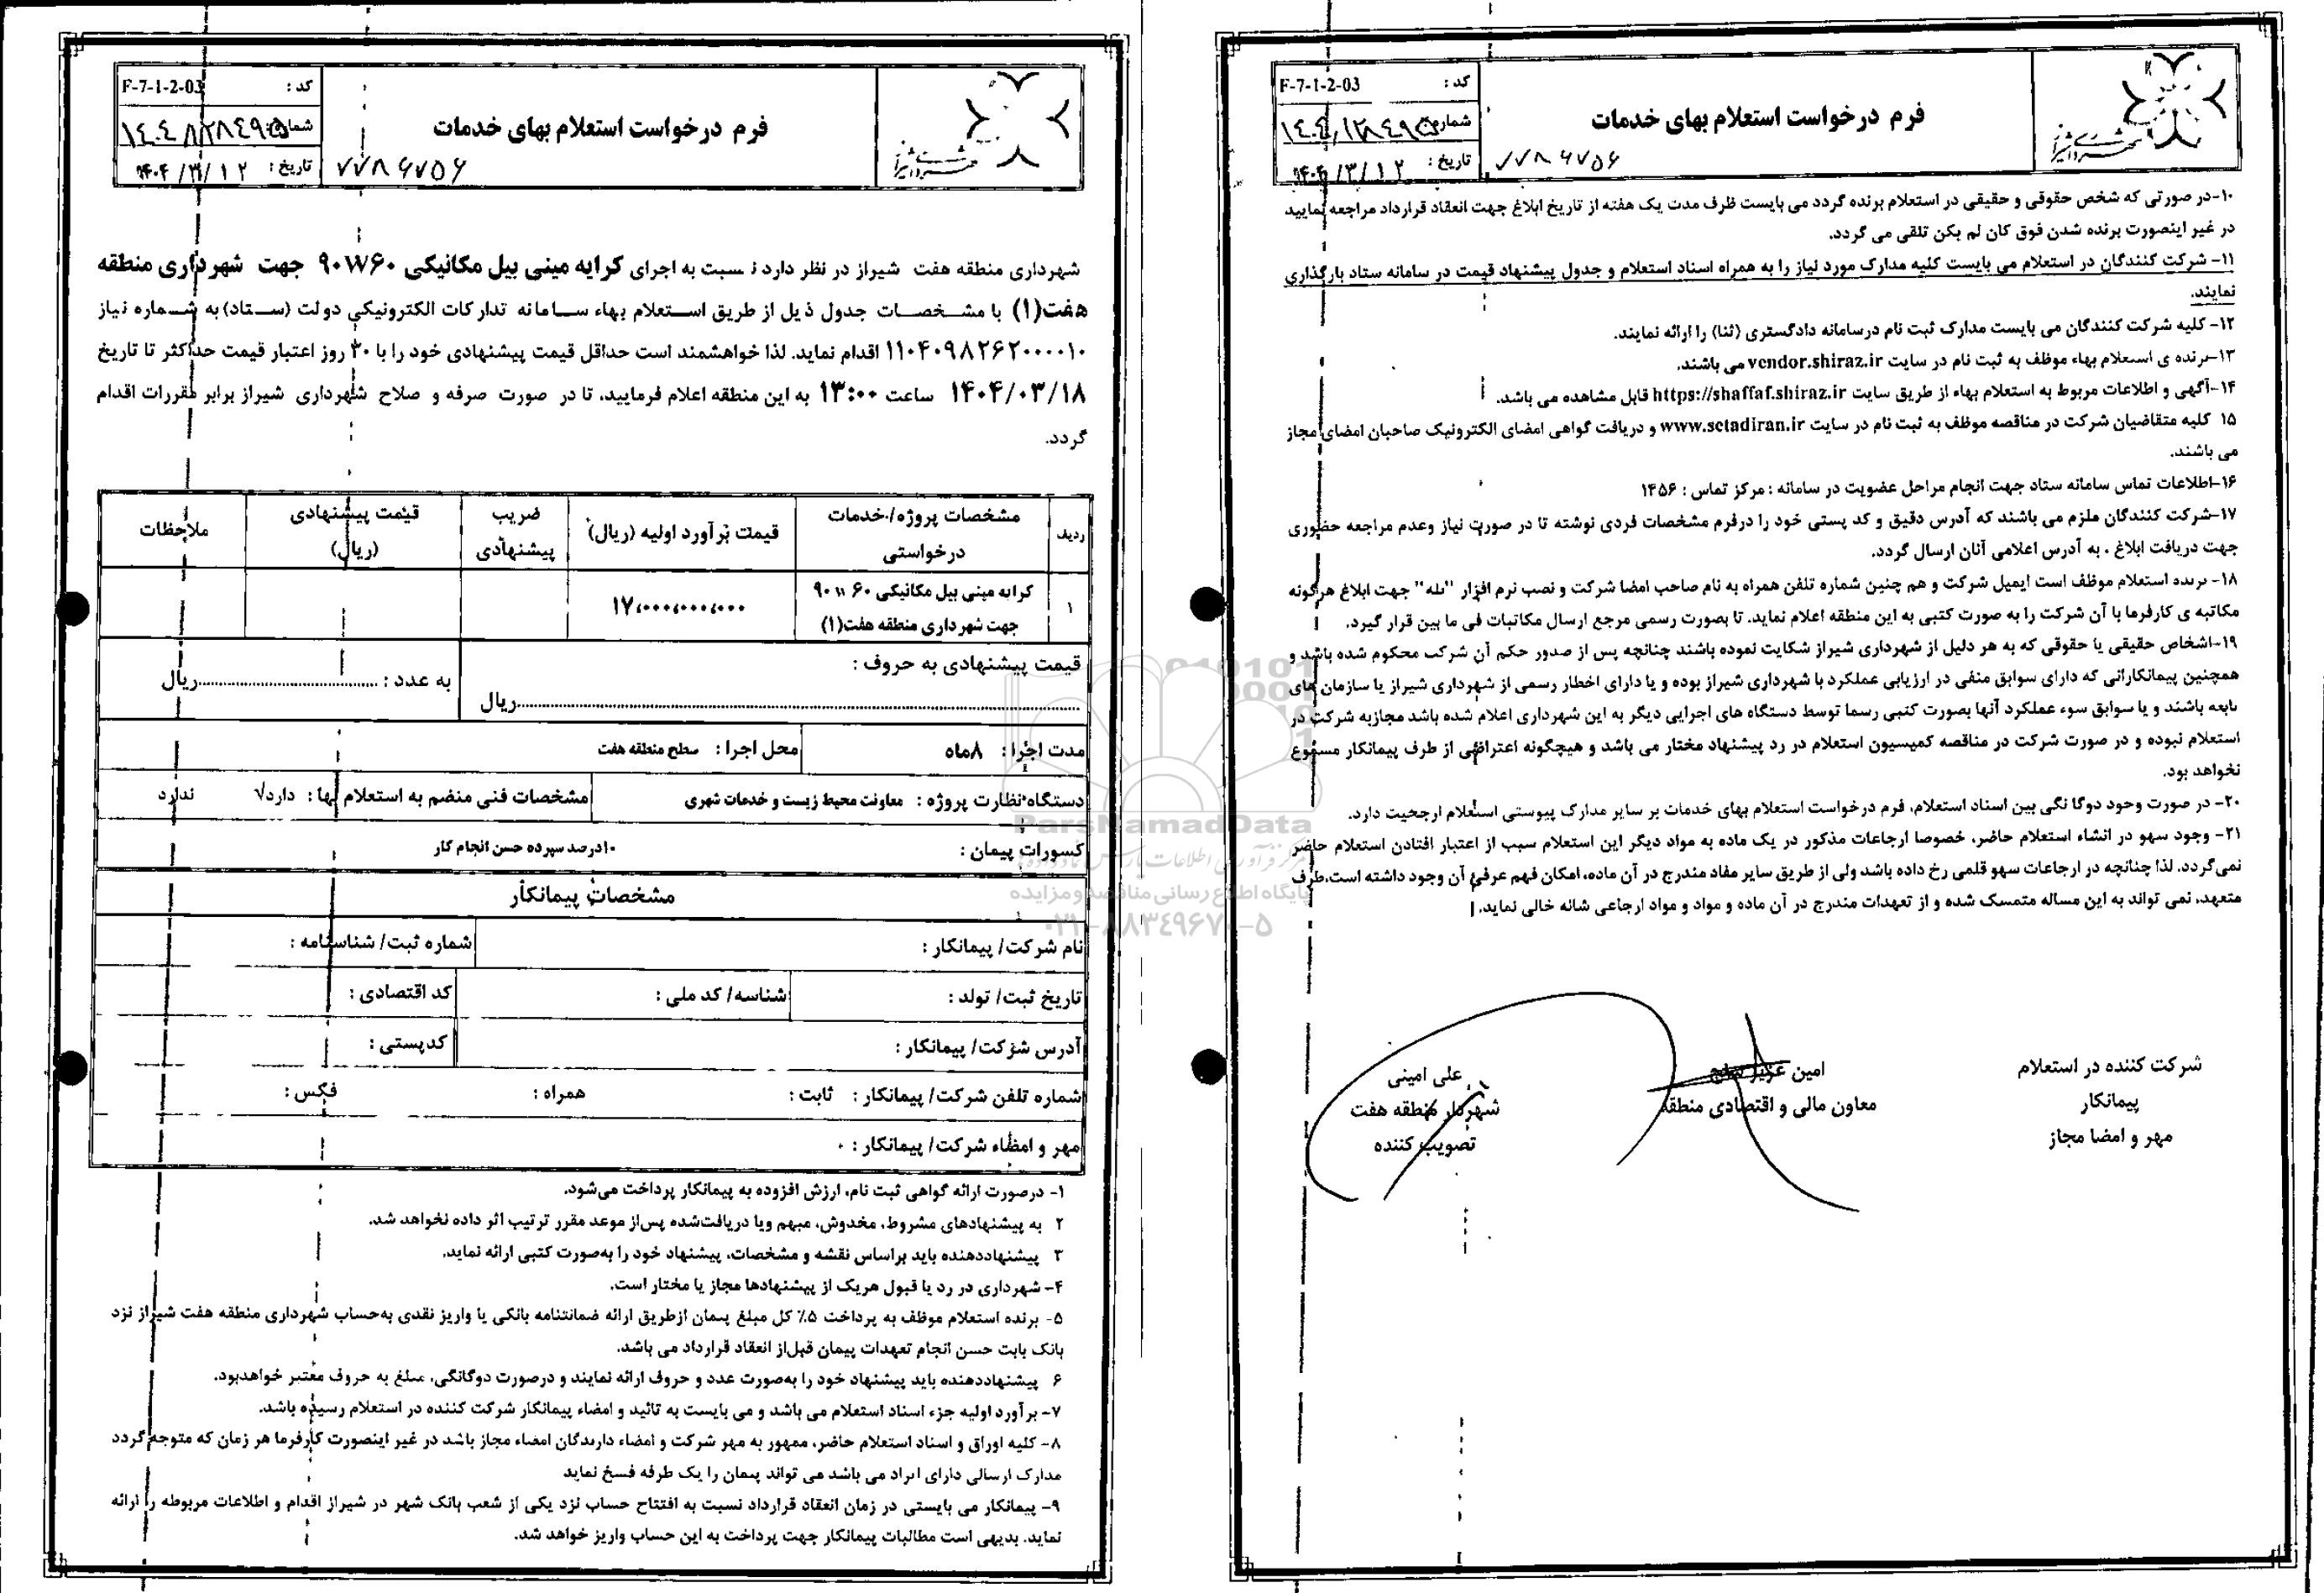 فرم درخواست استعلام بهای خدمات
کد : F-7-1-2-03
شماره:
تاریخ : ۱۴۰۴/۳/۱۲
۷۷۸۶۷۵۶
شهرداری منطقه هفت شیراز در نظر دارد نسبت به اجرای کرایه مینی بیل مکانیکی ۶۰W۹۰ جهت شهرداری منطقه
هفت(۱) با مشخصات جدول ذیل از طریق استعلام بهاء سامانه تدارکات الکترونیکی دولت (ستاد) به شماره نیاز
۱۱۰۴۰۹۸۲۶۲۰۰۰۰۱۰ اقدام نماید. لذا خواهشمند است حداقل قیمت پیشنهادی خود را با ۳۰ روز اعتبار قیمت حداکثر تا تاریخ
۱۴۰۴/۰۳/۱۸ ساعت ۱۳:۰۰ به این منطقه اعلام فرمایید، تا در صورت صرفه و صلاح شهرداری شیراز برابر مقررات اقدام
گردد.
ردیف
مشخصات پروژه/خدمات درخواستی
قیمت برآورد اولیه (ریال)
ضریب پیشنهادی
قیمت پیشنهادی (ریال)
ملاحظات
۱
کرایه مینی بیل مکانیکی ۶۰ w ۹۰
جهت شهرداری منطقه هفت(۱)
۱۷،۰۰۰،۰۰۰،۰۰۰
قیمت پیشنهادی به حروف :
......ریال
به عدد : ......ریال
مدت اجرا : ۸ماه
محل اجرا : سطح منطقه هفت
دستگاه نظارت پروژه : معاونت محیط زیست و خدمات شهری
مشخصات فنی منضم به استعلام بها : دارد√ ندارد
کسورات پیمان : ۱۰درصد سپرده حسن انجام کار
مشخصات پیمانکار
نام شرکت/ پیمانکار :
شماره ثبت/ شناسنامه :
تاریخ ثبت/ تولد :
شناسه/ کد ملی :
کد اقتصادی :
آدرس شرکت/ پیمانکار :
کدپستی :
شماره تلفن شرکت/ پیمانکار : ثابت : همراه : فکس :
مهر و امضاء شرکت/ پیمانکار :
۱- درصورت ارائه گواهی ثبت نام، ارزش افزوده به پیمانکار پرداخت می‌شود.
۲ به پیشنهادهای مشروط، مخدوش، مبهم ویا دریافت‌شده پس‌از موعد مقرر ترتیب اثر داده نخواهد شد.
۳ پیشنهاددهنده باید براساس نقشه و مشخصات، پیشنهاد خود را به‌صورت کتبی ارائه نماید.
۴- شهرداری در رد یا قبول هریک از پیشنهادها مجاز یا مختار است.
۵- برنده استعلام موظف به پرداخت ۵٪ کل مبلغ پیمان ازطریق ارائه ضمانتنامه بانکی یا واریز نقدی به‌حساب شهرداری منطقه هفت شیراز نزد
بانک بابت حسن انجام تعهدات پیمان قبل‌از انعقاد قرارداد می باشد.
۶ پیشنهاددهنده باید پیشنهاد خود را به‌صورت عدد و حروف ارائه نمایند و درصورت دوگانگی، مبلغ به حروف معتبر خواهدبود.
۷- برآورد اولیه جزء اسناد استعلام می باشد و می بایست به تائید و امضاء پیمانکار شرکت کننده در استعلام رسیده باشد.
۸- کلیه اوراق و اسناد استعلام حاضر، ممهور به مهر شرکت و امضاء دارندگان امضاء مجاز باشد در غیر اینصورت کارفرما هر زمان که متوجه گردد
مدارک ارسالی دارای ایراد می باشد می تواند پیمان را یک طرفه فسخ نماید
۹- پیمانکار می بایستی در زمان انعقاد قرارداد نسبت به افتتاح حساب نزد یکی از شعب بانک شهر در شیراز اقدام و اطلاعات مربوطه را ارائه
نماید. بدیهی است مطالبات پیمانکار جهت پرداخت به این حساب واریز خواهد شد.
فرم درخواست استعلام بهای خدمات
کد : F-7-1-2-03
شماره:
تاریخ : ۱۴۰۴/۳/۱۲
۷۷۸۶۷۵۶
۱۰-در صورتی که شخص حقوقی و حقیقی در استعلام برنده گردد می بایست ظرف مدت یک هفته از تاریخ ابلاغ جهت انعقاد قرارداد مراجعه نمایید
در غیر اینصورت برنده شدن فوق کان لم یکن تلقی می گردد.
۱۱- شرکت کنندگان در استعلام می بایست کلیه مدارک مورد نیاز را به همراه اسناد استعلام و جدول پیشنهاد قیمت در سامانه ستاد بارگذاری
نمایند.
۱۲- کلیه شرکت کنندگان می بایست مدارک ثبت نام درسامانه دادگستری (ثنا) را ارائه نمایند.
۱۳-برنده ی استعلام بهاء موظف به ثبت نام در سایت vendor.shiraz.ir می باشند.
۱۴-آگهی و اطلاعات مربوط به استعلام بهاء از طریق سایت https://shaffaf.shiraz.ir قابل مشاهده می باشد.
۱۵ کلیه متقاضیان شرکت در مناقصه موظف به ثبت نام در سایت www.setadiran.ir و دریافت گواهی امضای الکترونیک صاحبان امضای مجاز
می باشند.
۱۶-اطلاعات تماس سامانه ستاد جهت انجام مراحل عضویت در سامانه : مرکز تماس : ۱۴۵۶
۱۷-شرکت کنندگان ملزم می باشند که آدرس دقیق و کد پستی خود را درفرم مشخصات فردی نوشته تا در صورت نیاز وعدم مراجعه حضوری
جهت دریافت ابلاغ ، به آدرس اعلامی آنان ارسال گردد.
۱۸- برنده استعلام موظف است ایمیل شرکت و هم چنین شماره تلفن همراه به نام صاحب امضا شرکت و نصب نرم افزار "بله" جهت ابلاغ هرگونه
مکاتبه ی کارفرما با آن شرکت را به صورت کتبی به این منطقه اعلام نماید. تا بصورت رسمی مرجع ارسال مکاتبات فی ما بین قرار گیرد.
۱۹-اشخاص حقیقی یا حقوقی که به هر دلیل از شهرداری شیراز شکایت نموده باشند چنانچه پس از صدور حکم آن شرکت محکوم شده باشد و
همچنین پیمانکارانی که دارای سوابق منفی در ارزیابی عملکرد با شهرداری شیراز بوده و یا دارای اخطار رسمی از شهرداری شیراز یا سازمان های
تابعه باشند و یا سوابق سوء عملکرد آنها بصورت کتبی رسما توسط دستگاه های اجرایی دیگر به این شهرداری اعلام شده باشد مجازبه شرکت در
استعلام نبوده و در صورت شرکت در مناقصه کمیسیون استعلام در رد پیشنهاد مختار می باشد و هیچگونه اعتراضی از طرف پیمانکار مسموع
نخواهد بود.
۲۰- در صورت وجود دوگا نگی بین اسناد استعلام، فرم درخواست استعلام بهای خدمات بر سایر مدارک پیوستی استعلام ارجحیت دارد.
۲۱- وجود سهو در انشاء استعلام حاضر، خصوصا ارجاعات مذکور در یک ماده به مواد دیگر این استعلام سبب از اعتبار افتادن استعلام حاضر
نمی‌گردد. لذا چنانچه در ارجاعات سهو قلمی رخ داده باشد ولی از طریق سایر مفاد مندرج در آن ماده، امکان فهم عرفی آن وجود داشته است، طرف
متعهد، نمی تواند به این مساله متمسک شده و از تعهدات مندرج در آن ماده و مواد و مواد ارجاعی شانه خالی نماید.
شرکت کننده در استعلام
پیمانکار
مهر و امضا مجاز
امین
معاون مالی و اقتصادی منطقه
علی امینی
شهردار منطقه هفت
تصویب کننده
ParsNamadData
پایگاه اطلاع رسانی مناقصه و مزایده
۰۲۱-۸۸۳۴۹۶۷۰-۵